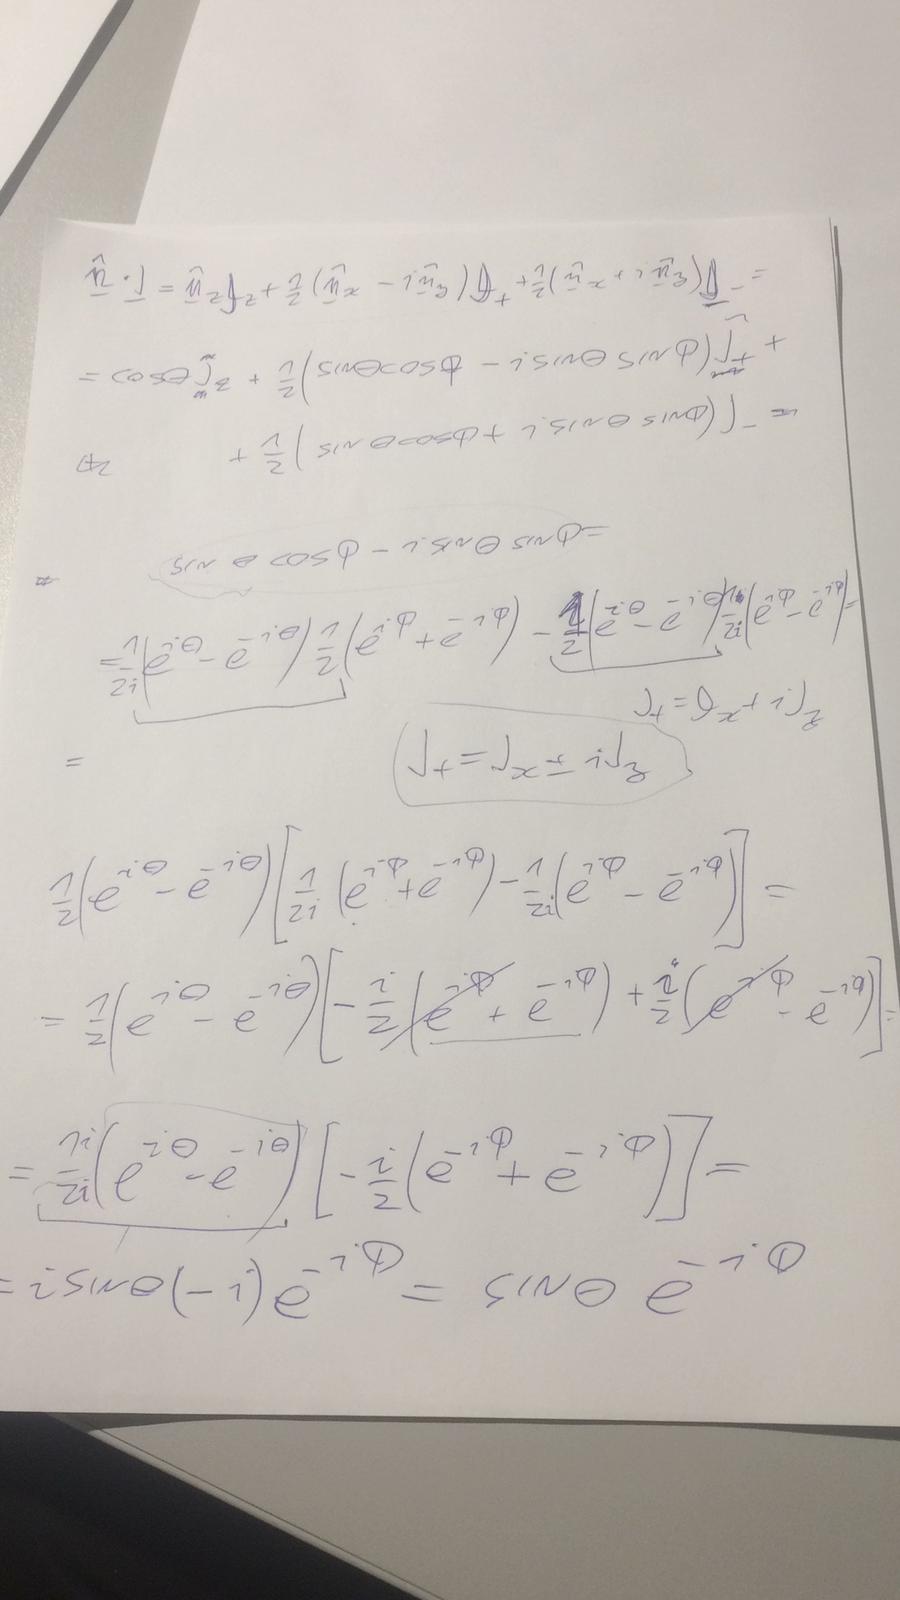 n̂ · J = n̂_z J_z + 1/2 (n̂_x - i n̂_y) J_+ + 1/2 (n̂_x + i n̂_y) J_- =
= cosθ J_z + 1/2 (sinθcosφ - i sinθ sinφ) J_+ +
+ 1/2 (sinθcosφ + i sinθ sinφ) J_- =
sinθ cosφ - i sinθ sinφ =
= 1/2i (e^{iθ} - e^{-iθ}) 1/2 (e^{iφ} + e^{-iφ}) - 1/2 (e^{iθ} - e^{-iθ}) 1/2i (e^{iφ} - e^{-iφ}) =
J_+ = J_x + i J_y
= J_± = J_x ± i J_y
1/2 (e^{iθ} - e^{-iθ}) [1/2i (e^{iφ} + e^{-iφ}) - 1/2i (e^{iφ} - e^{-iφ})] =
= 1/2 (e^{iθ} - e^{-iθ}) [- i/2 (e^{iφ} + e^{-iφ}) + i/2 (e^{iφ} - e^{-iφ})] =
= 1i/2i (e^{iθ} - e^{-iθ}) [- i/2 (e^{-iφ} + e^{-iφ})] =
= i sinθ (-i) e^{-iφ} = sinθ e^{-iφ}